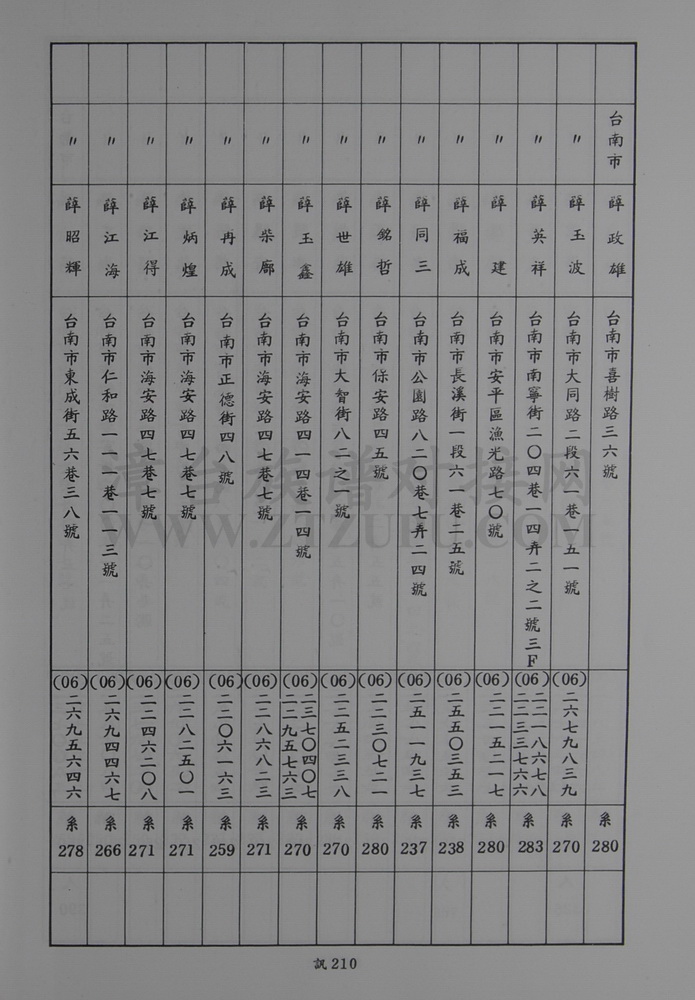 台南市 薛政雄 台南市喜樹路三六號 系280
〃 薛玉波 台南市大同路二段六一巷一五一號 (06)二六七九八三九 系270
〃 薛英祥 台南市南寧街二〇四巷一四弄二之二號三F (06)二二一八六七八 二二三三七六六 系283
〃 薛建 台南市安平區漁光路七〇號 (06)二二一五二一七 系280
〃 薛福成 台南市長溪街一段六一巷二五號 (06)二五五〇三五三 系238
〃 薛同三 台南市公園路八二〇巷七弄二四號 (06)二五一一九三七 系237
〃 薛銘哲 台南市保安路四五號 (06)二二三〇七二一 系280
〃 薛世雄 台南市大智街八二之一號 (06)二二五二三三八 系270
〃 薛玉鑫 台南市海安路四一四巷一四號 (06)二三七〇四〇七 二二九五七六三 系270
〃 薛柴廊 台南市海安路四七巷七號 (06)二二八六八二三 系271
〃 薛冉成 台南市正德街四八號 (06)二二〇六一六三 系259
〃 薛炳煌 台南市海安路四七巷七號 (06)二二八二五〇一 系271
〃 薛江得 台南市海安路四七巷七號 (06)二二四六二〇八 系271
〃 薛江海 台南市仁和路一一一巷一一三號 (06)二六九四四六七 系266
〃 薛昭輝 台南市東成街五六巷三八號 (06)二六九五六四六 系278
訊210
漳台族譜对接网
WWW.ZTZUPU.COM